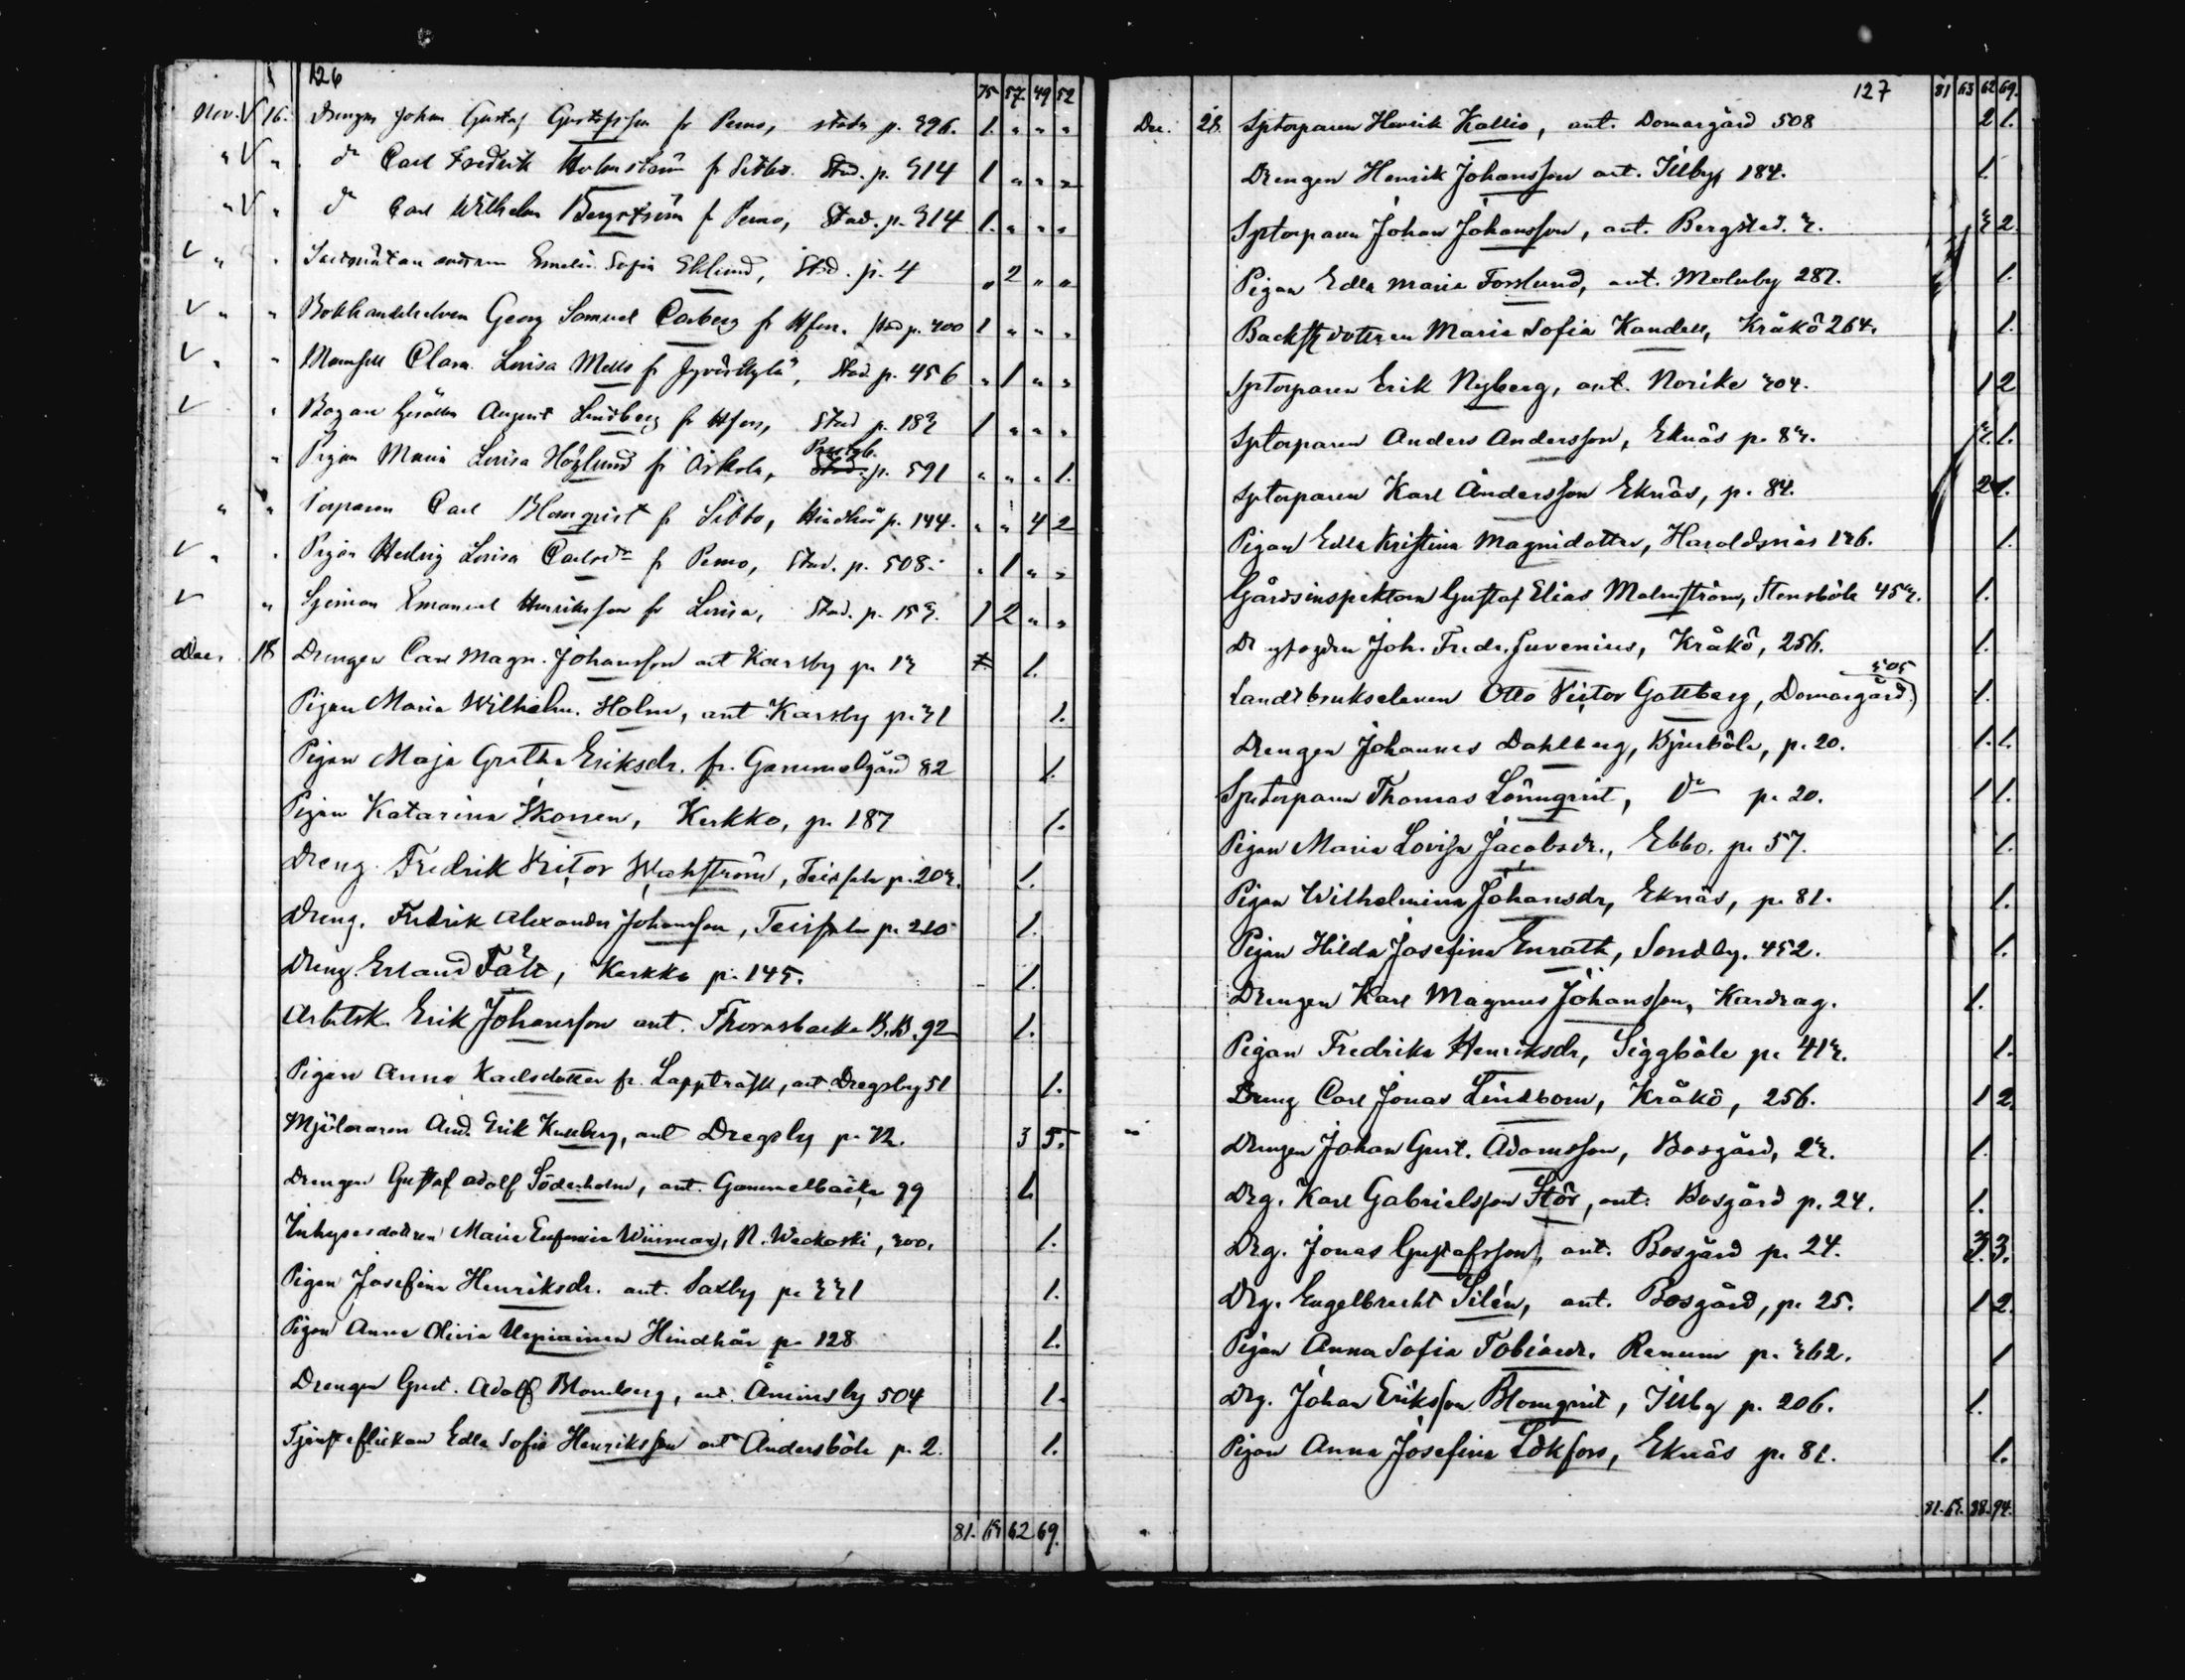 126
75 57 49 52
Nov. V 16. Drengen Johan Gustaf Gustafsson fr Perno, stadn p. 396. 1. " " "
" V " dn Carl Fredrik Holmström fr Sibbo. Stad. p. 314 1 " " "
" V " dn Carl Wilhelm Bergström f Perno, Stad. p. 314 1. " " "
V " " Emelie Sofia Eklund, Stad. p. 4 " 2 " "
V " " Georg Samuel Carberg fr Hfors. Stad p. 400 1 " " "
V " " Mamsell Clara Lovisa Mells fr Jyväskylä, Stad. p. 456 " 1 " "
V " Bagare Gesällen August Lindberg fr Hfors, Stad p. 183 1 " " "
" Pigan Maria Lovisa Höglund fr Askola, Prestgb. Stad. p. 591 " " " 1.
" " Torparen Carl Blomqvist fr Sibbo, Hindhår p. 144. " " 4 2
V " " Pigan Hedvig Lovisa Carlsdr fr Perno, Stad. p. 508. " 1 " "
V " Sjöman Emanuel Henriksson fr Lovisa, Stad. p. 153. 1 2 " "
Dec. 18 Drengen Carl Magn. Johansson ant Karsby p. 13 1.
Pigan Maria Wilhelm. Holm, ant Karsby p. 31 1.
Pigan Maja Gretha Eriksdr. fr. Gammelgård 82 1.
Pigan Katarina Ikonen, Kerkko, p. 187 1.
Dreng. Fredrik Victor Wackström, Teissala p. 203. 1.
Dreng. Fredrik Alexander Johansson, Teissala p. 210 1.
Dreng Erland Fält, Kerkko p. 145. 1.
Arbetsk. Erik Johansson ant. Thornsbacka B.B. 92 1.
Pigan Anna Karlsdotter fr. Lappträsk, ant Dregsby 51 1.
Mjölnaren And. Erik Kullberg, ant Dregsby p. 72. 3 5.
Drengen Gustaf Adolf Söderholm, ant. Gammelbacka 99 1.
Inhysesdottren Maria Eufemia Wiirman, N. Weckoski, 300. 1.
Pigan Josefina Henriksdr. ant. Saxby p. 331 1.
Pigan Anna Olivia Uepiainen Hindhår p. 128 1.
Drengen Gust. Adolf Blomberg, ant. Åminsby 504 1.
Tjänsteflickan Edla Sofia Henriksson ant Andersböle p. 2. 1.
81. 63 62 69.
127
81 63 62 69.
Dec. 28. Sptorparen Henrik Kallio, ant. Domargård 508 2 1.
Drengen Henrik Johansson ant. Illby 184. 1.
Sptorparen Johan Johansson, ant. Bergstad. 3. 3 2.
Pigan Edla Maria Forslund, ant. Molnby 287. 1.
Backstudotren Maria Sofia Kandell, Kråkö 264. 1.
Sptorparen Erik Nyberg, ant. Norike 304. 1 2
Sptorparen Anders Andersson, Eknäs p. 83. 3. 1.
Sptorparen Karl Andersson Eknäs, p. 84. 2 1.
Pigan Edla Kristina Magnidotter, Haraldsnäs 136. 1.
Gårdsinspektoren Gustaf Elias Malmström, Stensböle 453. 1.
Joh. Fredr. Juvenius, Kråkö, 256. 1.
Landtbrukseleven Otto Victor Gottberg, Domargård. 505 1.
Drengen Johannes Dahlberg, Bjurböle, p. 20. 1. 1.
Sptorparen Thomas Lönnqvist, dn p. 20. 1 1.
Pigan Maria Lovisa Jacobsdr., Ebbo. p. 57. 1.
Pigan Wilhelmina Johansdr, Eknäs, p. 81. 1.
Pigan Hilda Josefina Enrath, Sondby. 452. 1.
Drengen Karl Magnus Johansson, Kardrag. 1.
Pigan Fredrika Henriksdr, Siggböle p. 413. 1.
Dreng Carl Jonas Lindbom, Kråkö, 256. 1 2.
Drengen Johan Gust. Adamsson, Bosgård, 23. 1.
Drg. Karl Gabrielsson Stör, ant. Bosgård p. 24. 1.
Drg. Jonas Gustafsson, ant. Bosgård p. 24. 3. 3.
Drg. Engelbrecht Silén, ant. Bosgård, p. 25. 1 2.
Pigan Anna Sofia Tobiasdr. Renum p. 362. 1
Drg. Johan Eriksson Blomqvist, Illby p. 206. 1.
Pigan Anna Josefina Lökfors, Eknäs p. 81. 1.
81. 63. 88. 94.